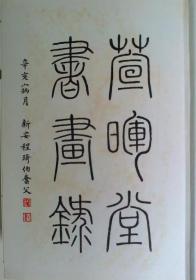 萱暉堂
書畫錄
辛亥寎月 新安程琦伯奮父